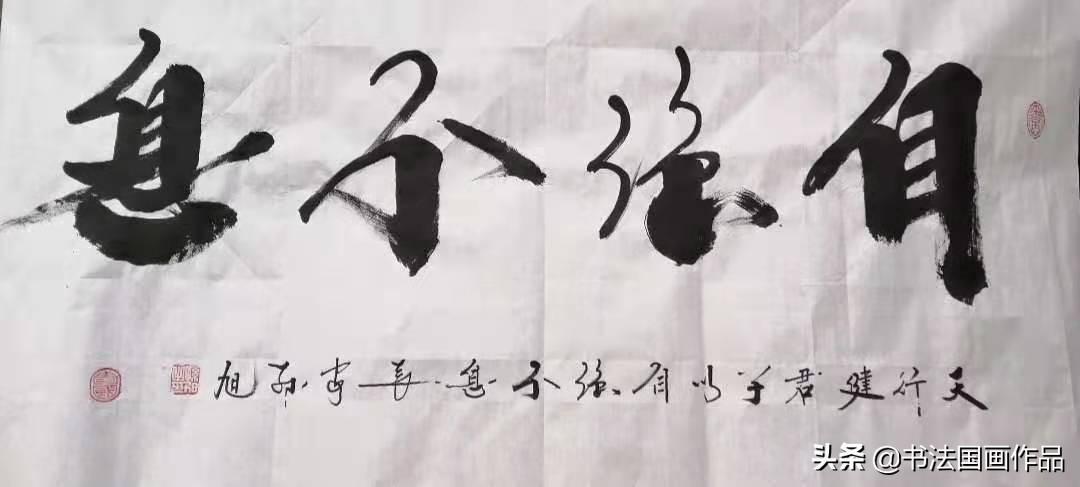 自强不息
天行健君子以自强不息
头条 @书法国画作品